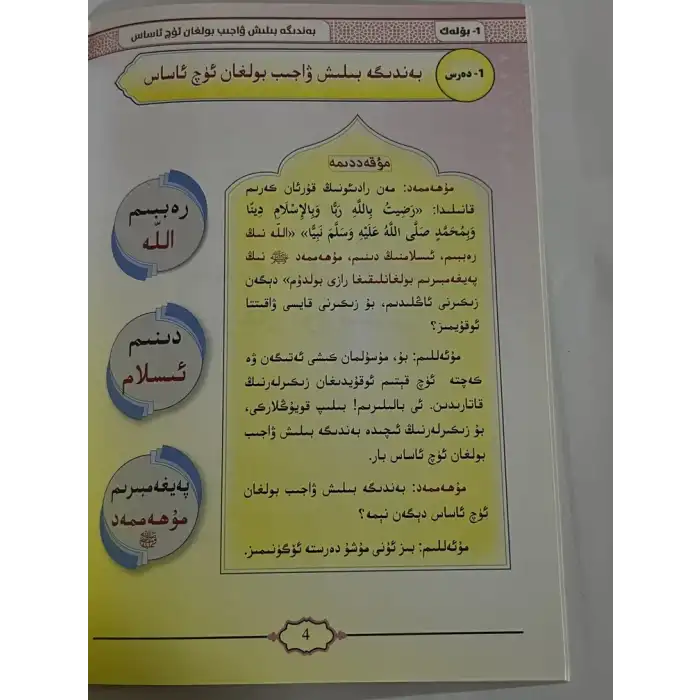 1- بۆلەك
بەندىگە بىلىش ۋاجىب بولغان ئۈچ ئاساس
1- دەرس
بەندىگە بىلىش ۋاجىب بولغان ئۈچ ئاساس
مۇقەددىمە
مۇھەممەد: مەن رادىئونىڭ قۇرئان كەرىم
قانىلىدا: «رَضِيتُ بِاللَّهِ رَبًّا وَبِالإِسْلَامِ دِينًا
وَبِمُحَمَّدٍ صَلَّى اللَّهُ عَلَيْهِ وَسَلَّمَ نَبِيًّا» «اللّه نىڭ
رەببىم، ئىسلامنىڭ دىنىم، مۇھەممەد ﷺ نىڭ
پەيغەمبىرىم بولغانلىقىغا رازى بولدۇم» دېگەن
زىكىرنى ئاڭلىدىم، بۇ زىكىرنى قايسى ۋاقىتتا
ئوقۇيمىز؟
مۇئەللىم: بۇ، مۇسۇلمان كىشى ئەتىگەن ۋە
كەچتە ئۈچ قېتىم ئوقۇيدىغان زىكىرلەرنىڭ
قاتارىدىن. ئى بالىلىرىم! بىلىپ قويۇڭلاركى،
بۇ زىكىرلەرنىڭ ئىچىدە بەندىگە بىلىش ۋاجىب
بولغان ئۈچ ئاساس بار.
مۇھەممەد: بەندىگە بىلىش ۋاجىب بولغان
ئۈچ ئاساس دېگەن نېمە؟
مۇئەللىم: بىز ئۇنى مۇشۇ دەرستە ئۆگۈنىمىز.
رەببىم
اللّه
دىنىم
ئىسلام
پەيغەمبىرىم
مۇھەممەد
ﷺ
4